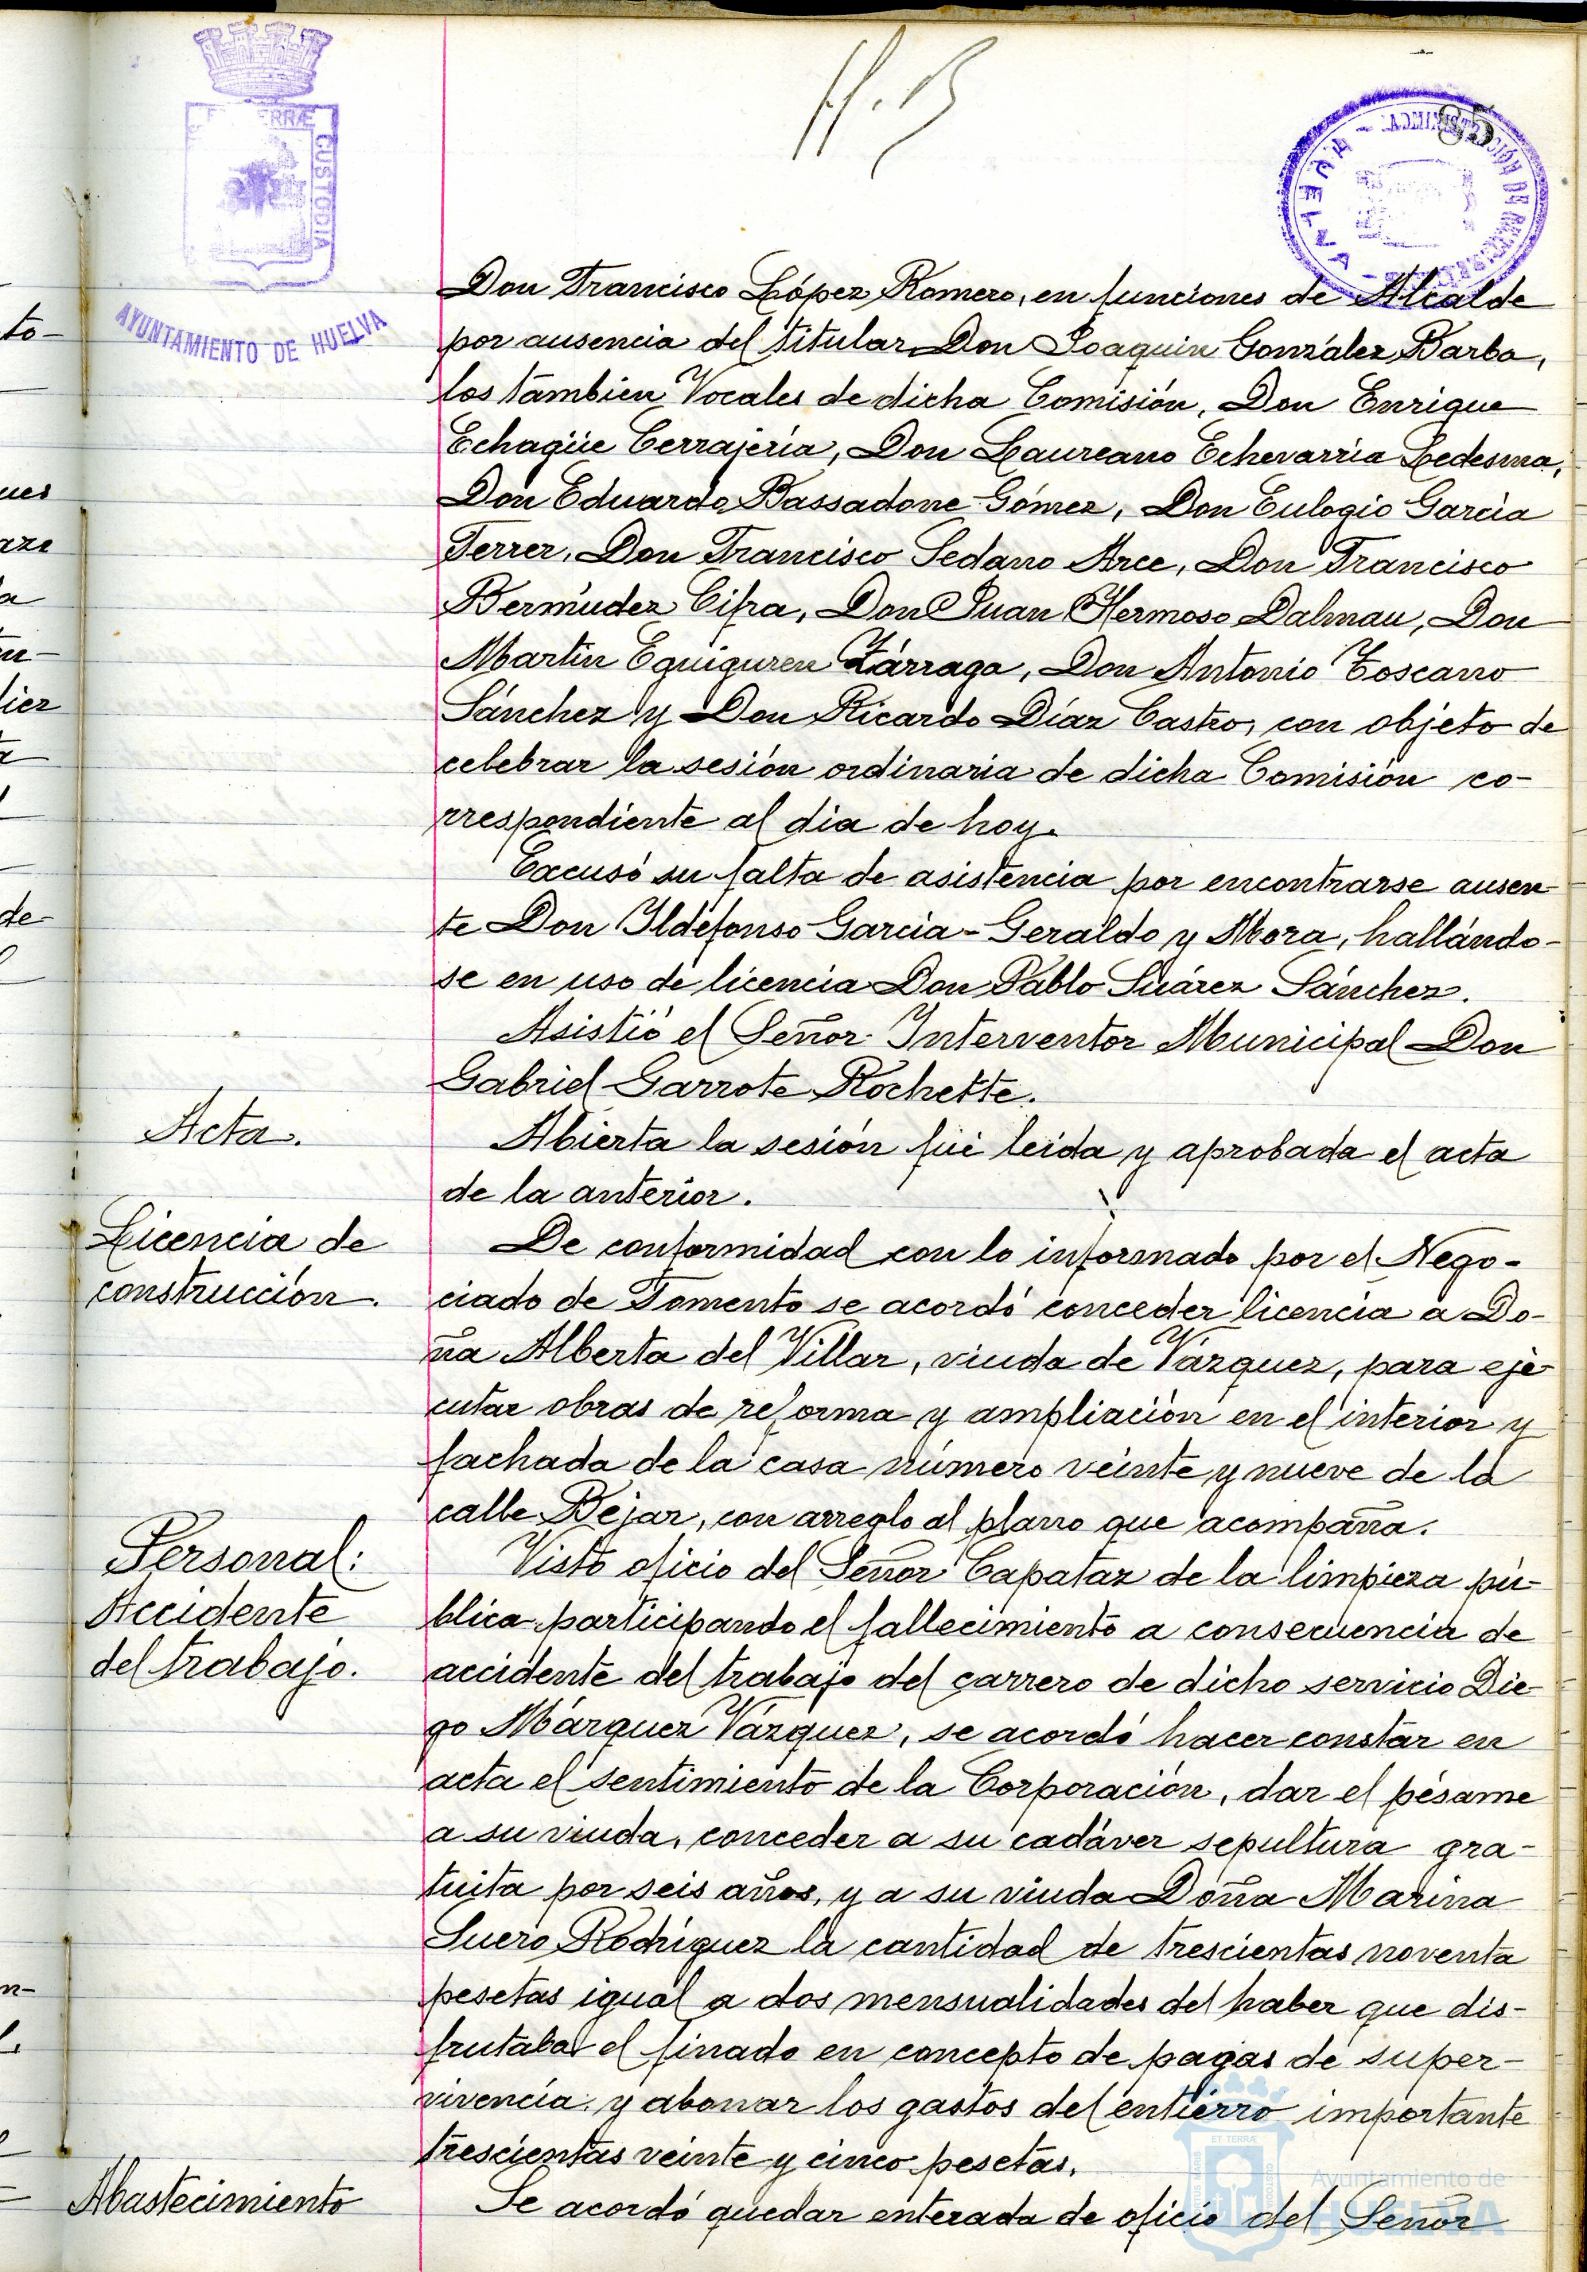 TERRÆ
CUSTODIA
AYUNTAMIENTO DE HUELVA
85
Don Francisco López Romero, en funciones de Alcalde
por ausencia del titular Don Joaquin González Barba,
los tambien Vocales de dicha Comisión, Don Enrique
Echagüe Cerrajeria, Don Laureano Echevarria Ledesma,
Don Eduardo Bassadone Gómez, Don Eulogio Garcia
Ferrer, Don Francisco Sedano Arce, Don Francisco
Bermúdez Cifra, Don Juan Hermoso Dalmau, Don
Martin Eguiguren Zárraga, Don Antonio Toscano
Sánchez y Don Ricardo Díaz Castro, con objeto de
celebrar la sesión ordinaria de dicha Comisión co-
rrespondiente al dia de hoy.
Excusó su falta de asistencia por encontrarse ausen-
te Don Ildefonso Garcia-Geraldo y Mora, hallándo-
se en uso de licencia Don Pablo Suárez Sánchez.
Asistió el Señor Interventor Municipal Don
Gabriel Garrote Rochette.
Acta.
Abierta la sesión fué leida y aprobada el acta
de la anterior.
Licencia de
construcción.
De conformidad con lo informado por el Nego-
ciado de Fomento se acordó conceder licencia a Do-
ña Alberta del Villar, viuda de Vázquez, para eje-
cutar obras de reforma y ampliación en el interior y
fachada de la casa número veinte y nueve de la
calle Béjar, con arreglo al plano que acompaña.
Personal:
Accidente
del trabajo.
Visto oficio del Señor Capataz de la limpieza pú-
blica participando el fallecimiento a consecuencia de
accidente del trabajo del carrero de dicho servicio Die-
go Márquez Vázquez, se acordó hacer constar en
acta el sentimiento de la Corporación, dar el pésame
a su viuda, conceder a su cadáver sepultura gra-
tuita por seis años, y a su viuda Doña Marina
Suero Rodriguez la cantidad de trescientas noventa
pesetas igual a dos mensualidades del haber que dis-
frutaba el finado en concepto de pagas de super-
vivencia, y abonar los gastos del entierro importante
trescientas veinte y cinco pesetas.
Abastecimiento
Se acordó quedar enterada de oficio del Señor
Ayuntamiento de
HUELVA